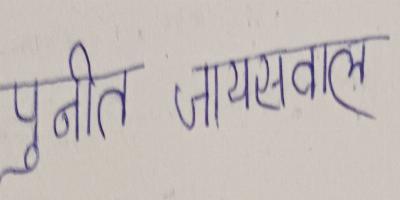 पुनीत जायसवाल